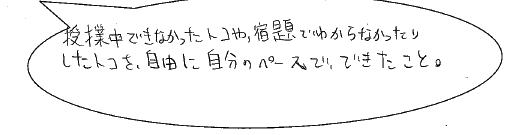 授業中できなかったトコや,宿題でわからなかったり
したトコを、自由に自分のペースで、できたこと。